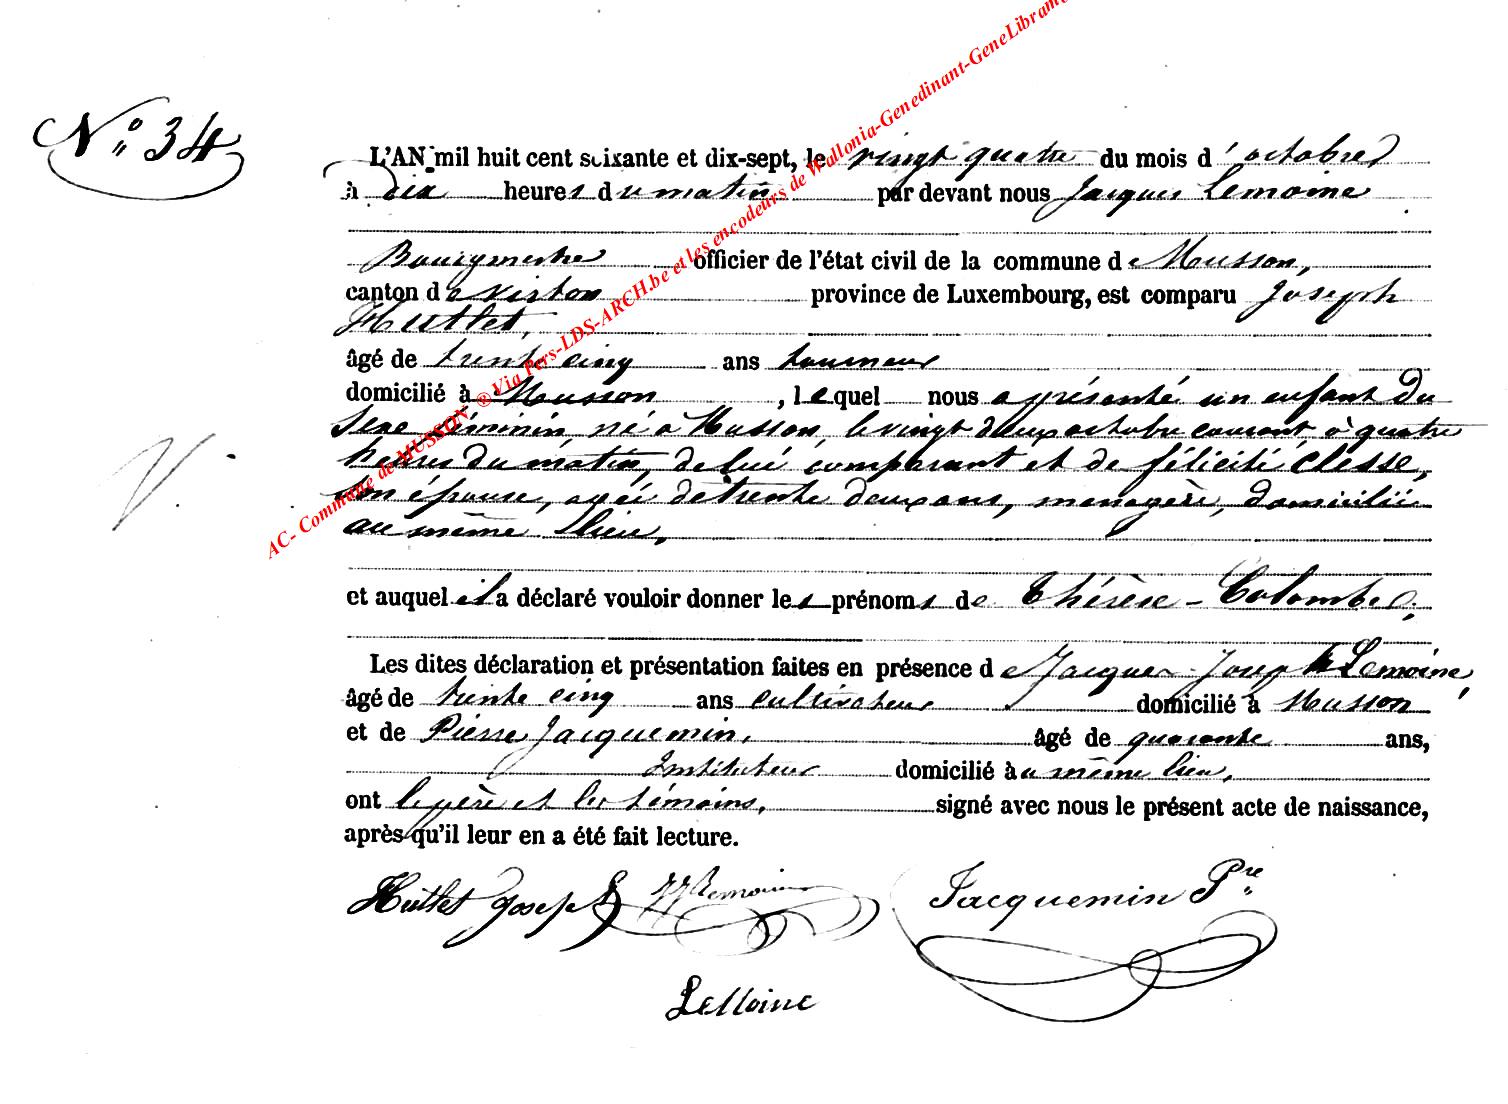 N° 34
L'AN mil huit cent soixante et dix-sept, le vingt quatre du mois d'octobre
à dix heures du matin par devant nous Jacques Lemoine
Bourgmestre officier de l'état civil de la commune de Musson,
canton de Virton province de Luxembourg, est comparu Joseph
Hutlet,
âgé de trente cinq ans tourneur
domicilié à Musson, lequel nous a présenté un enfant du
sexe féminin né à Musson, le vingt deux octobre courant, à quatre
heures du matin, de lui comparant et de félicité Clesse,
son épouse, agée de trente deux ans, menagère, domiciliée
au même lieu,
et auquel il a déclaré vouloir donner les prénoms de Thérèse-Colombe.
Les dites déclaration et présentation faites en présence de Jacques Joseph Lemoine,
âgé de trente cinq ans cultivateur domicilié à Musson
et de Pierre Jacquemin, âgé de quarante ans,
Instituteur domicilié au même lieu,
ont le père et les témoins, signé avec nous le présent acte de naissance,
après qu'il leur en a été fait lecture.
Hutlet Joseph JJ Lemoine Jacquemin Pre
LeMoine
V.
AC- Commune de MUSSON ® Via Pers-LDS-ARCH.be et les encodeurs de Wallonia-Genedinant-GeneLibramo